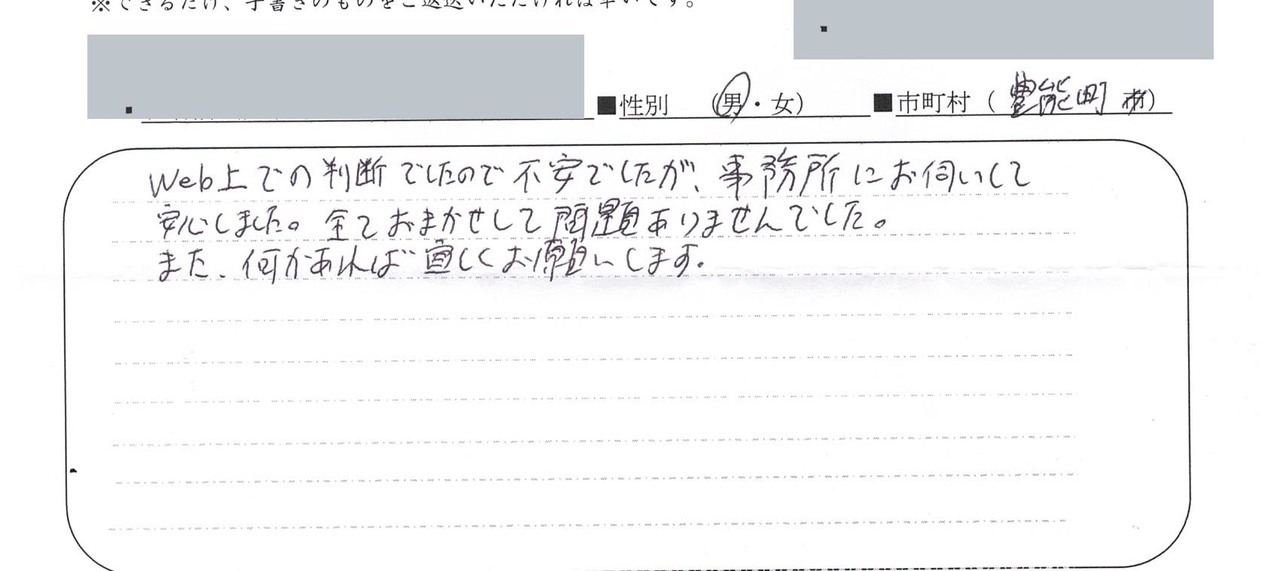 ※できるだけ、手書きのものをご返送いただければ幸いです。
■性別 (男・女) ■市町村(豊能町)
Web上での判断でしたので不安でしたが、事務所にお伺いして
安心しました。全ておまかせして問題ありませんでした。
また、何かあれば宜しくお願いします。